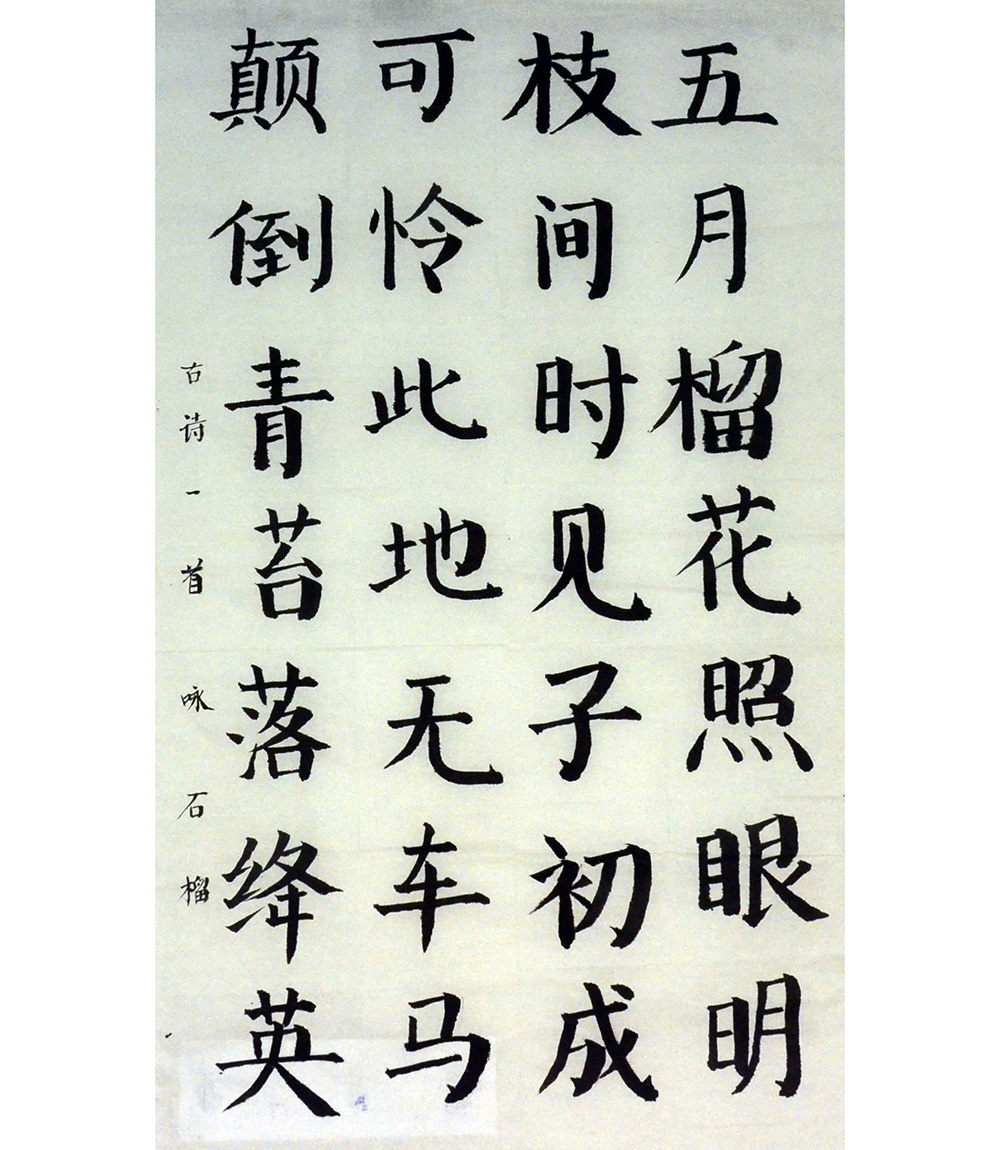 五月榴花照眼明
枝间时见子初成
可怜此地无车马
颠倒青苔落绛英
古诗一首 咏石榴